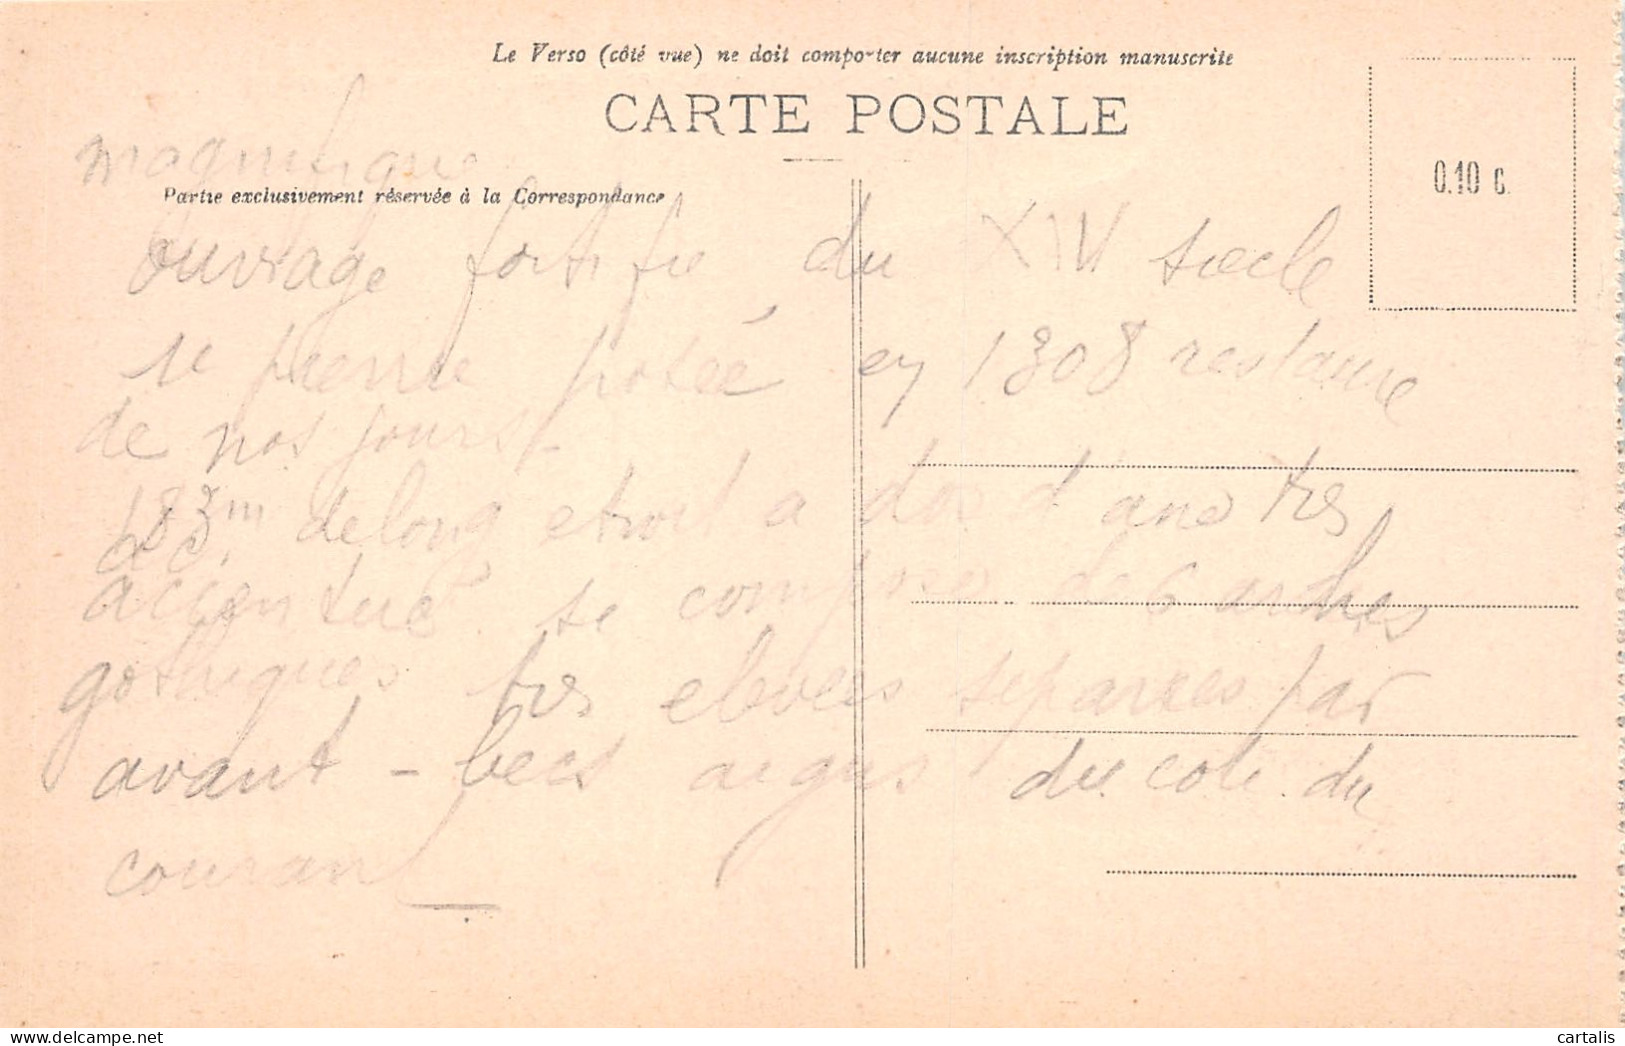 Le Verso (côté vue) ne doit comporter aucune inscription manuscrite
CARTE POSTALE
0.10 c.
magnifique
Partie exclusivement réservée à la Correspondance
Ouvrage fortifie du XIV siecle
1e pierre posée en 1308 restaure
de nos jours -
183m de long etroit a dos d ane tres
accentué se compose de 6 arches
gothiques tres elevees separees par
avant - becs aigus du cote du
courant
cartalis